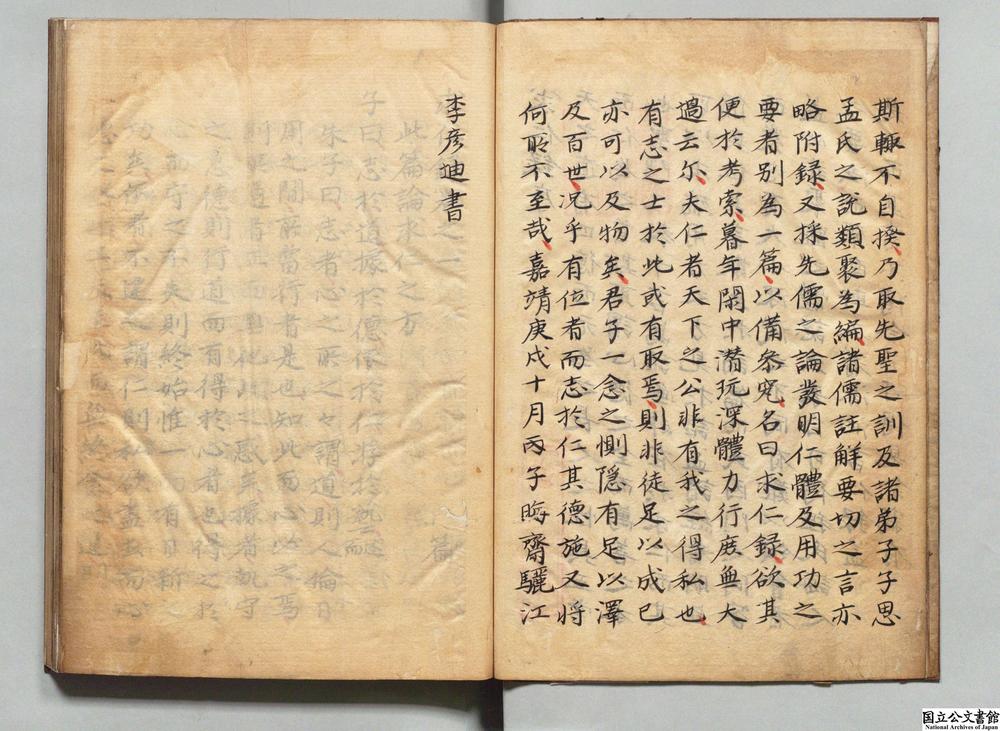 斯輙不自揆乃取先聖之訓及諸弟子子思
孟氏之說類聚為編諸儒註解要切之言亦
略附錄又採先儒之論發明仁體及用功之
要者別為一篇以備叅究名曰求仁録欲其
便於考索暮年閑中潜玩深體力行庻無大
過云尓夫仁者天下之公非有我之得私也
有志之士於此或有取焉則非徒足以成已
亦可以及物矣君子一念之惻隠有足以澤
及百世况乎有位者而志於仁其德施又將
何所不至哉嘉靖庚戌十月丙子晦齋驪江
李彦迪書
国立公文書館
National Archives of Japan